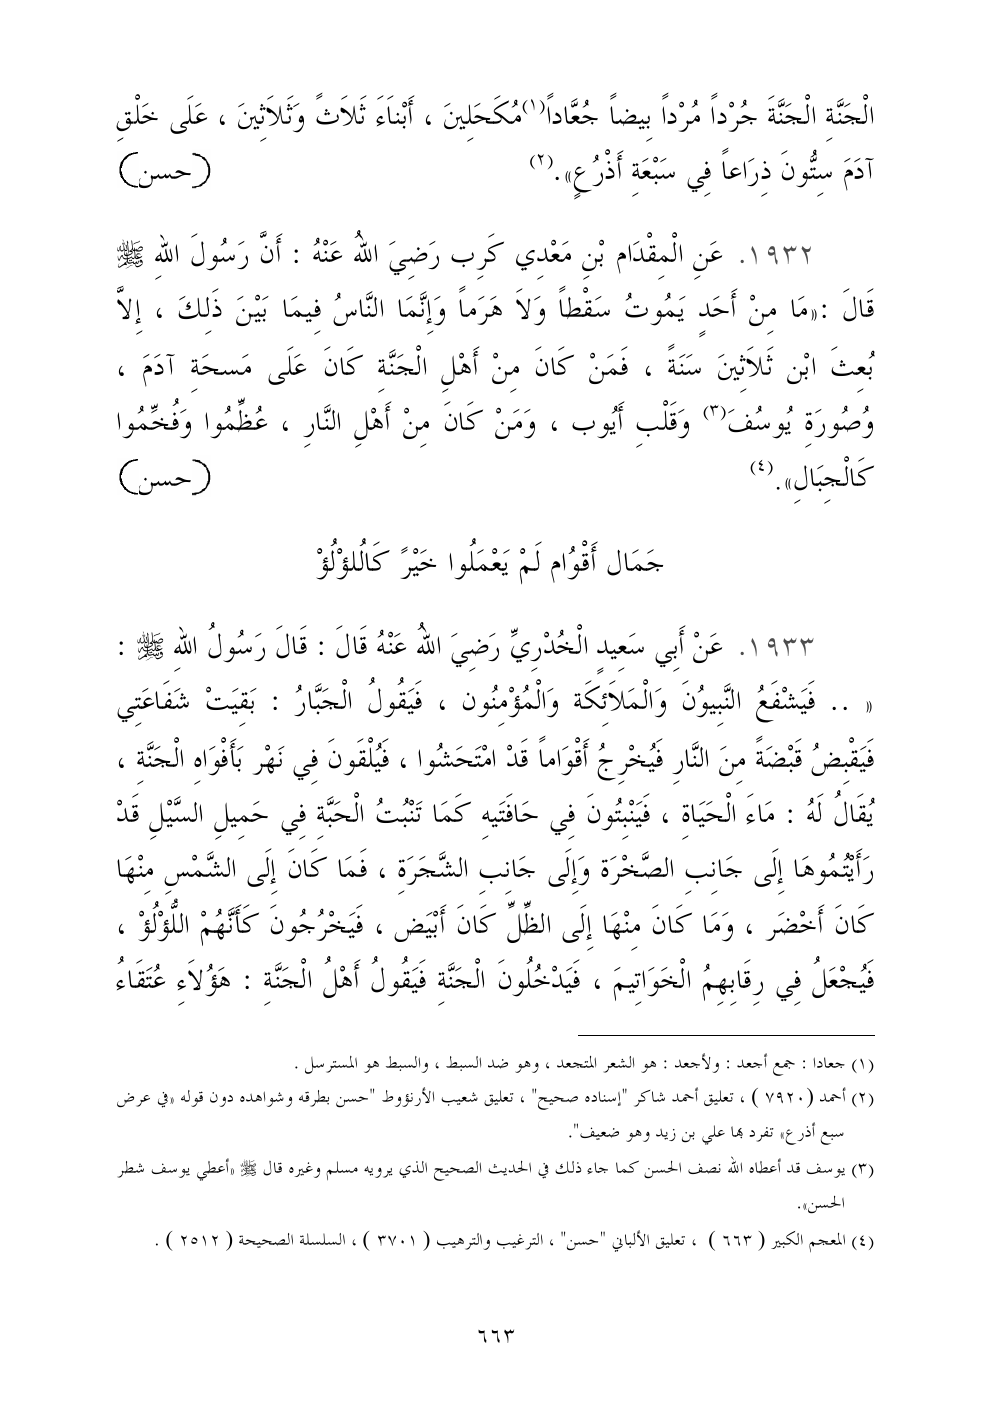 الْجَنَّةِ الْجَنَّةَ جُرْداً مُرْداً بِيضاً جُعَّاداً(١)مُكَحَلِينَ ، أَبْنَاءَ ثَلَاثٌ وَثَلَاثِينَ ، عَلَى خَلْقِ
آدَمَ سِتُّونَ ذِرَاعاً فِي سَبْعَةِ أَذْرُعٍ».(٢) (حسن)
١٩٣٢. عَنِ الْمِقْدَام بْنِ مَعْدِي كَرِب رَضِيَ اللهُ عَنْهُ : أَنَّ رَسُولَ اللهِ ﷺ
قَالَ :«مَا مِنْ أَحَدٍ يَمُوتُ سَقْطاً وَلاَ هَرَماً وَإِنَّمَا النَّاسُ فِيمَا بَيْنَ ذَلِكَ ، إِلاَّ
بُعِثَ ابْن ثَلاَثِينَ سَنَةً ، فَمَنْ كَانَ مِنْ أَهْلِ الْجَنَّةِ كَانَ عَلَى مَسحَةِ آدَمَ ،
وصُورَةِ يُوسُفَ(٣) وَقَلْبِ أَيُوب ، وَمَنْ كَانَ مِنْ أَهْلِ النَّارِ ، عُظِّمُوا وَفُخِّمُوا
كَالْجِبَالِ».(٤) (حسن)
جَمَال أَقْوُام لَمْ يَعْمَلُوا خَيْرً كَاللؤْلُؤْ
١٩٣٣. عَنْ أَبِي سَعِيدٍ الْخُدْرِيِّ رَضِيَ اللهُ عَنْهُ قَالَ : قَالَ رَسُولُ اللهِ ﷺ :
« .. فَيَشْفَعُ النَّبِيوُنَ وَالْمَلاَئِكَة وَالْمُؤْمِنُون ، فَيَقُولُ الْجَبَّارُ : بَقِيَتْ شَفَاعَتِي
فَيَقْبِضُ قَبْضَةً مِنَ النَّارِ فَيُخْرِجُ أَقْوَاماً قَدْ امْتَحَشُوا ، فَيُلْقَونَ فِي نَهْر بَأَفْوَاهِ الْجَنَّة ،
يُقَالُ لَهُ : مَاءَ الْحَيَاةِ ، فَيَنْبِتُونَ فِي حَافَتَيه كَمَا تَنْبُتُ الْحَبَّة فِي حَمِيلِ السَّيْلِ قَدْ
رَأَيْتُمُوهَا إِلَى جَانِبِ الصَّخْرَة وَإِلَى جَانِبِ الشَّجَرَةِ ، فَمَا كَانَ إِلَى الشَّمْسِ مِنْهَا
كَانَ أَخْضَر ، وَمَا كَانَ مِنْهَا إِلَى الظِّلِّ كَانَ أَبْيَض ، فَيَخْرُجُونَ كَأَنَّهُمْ اللُّؤْلُؤْ ،
فَيُجْعَلُ فِي رِقَابِهِمُ الْخَوَاتِيمَ ، فَيَدْخُلُونَ الْجَنَّة فَيَقُولُ أَهْلُ الْجَنَّةِ : هَؤُلاَءِ عُتَقَاءُ
(١) جعادا : جمع أجعد : ولأجعد : هو الشعر المتجعد ، وهو ضد السبط ، والسبط هو المسترسل .
(٢) أحمد (٧٩٢٠ ) ، تعليق أحمد شاكر "إسناده صحيح" ، تعليق شعيب الأرنؤوط "حسن بطرقه وشواهده دون قوله «في عرض
سبع أذرع» تفرد بها علي بن زيد وهو ضعيف".
(٣) يوسف قد أعطاه الله نصف الحسن كما جاء ذلك في الحديث الصحيح الذي يرويه مسلم وغيره قال ﷺ «أعطي يوسف شطر
الحسن».
(٤) المعجم الكبير ( ٦٦٣ ) ، تعليق الألباني "حسن" ، الترغيب والترهيب ( ٣٧٠١ ) ، السلسلة الصحيحة ( ٢٥١٢ ) .
٦٦٣